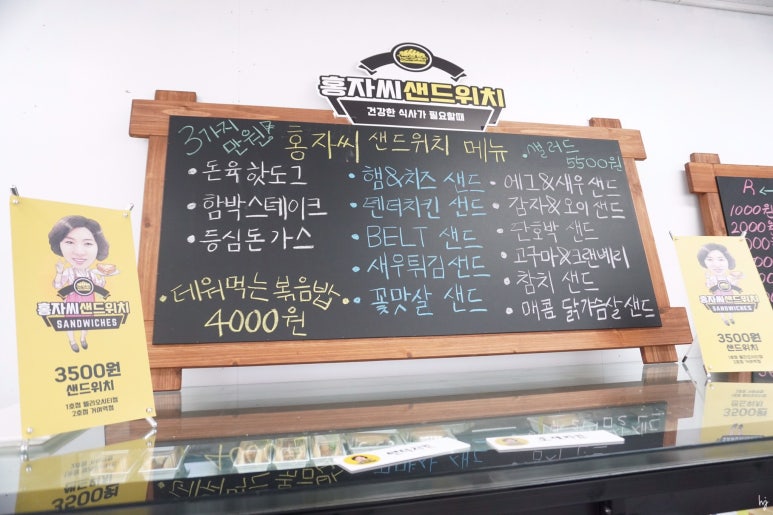 홍자씨샌드위치
건강한 식사가 필요할때
3가지
만원!
홍자씨 샌드위치 메뉴
• 샐러드
5500원
• 돈육 핫도그
• 함박스테이크
• 등심돈가스
• 데워먹는 볶음밥 •
4000원
• 햄&치즈 샌드
• 텐더치킨 샌드
• BELT 샌드
• 새우튀김샌드
• 꽃맛살 샌드
• 에그&새우 샌드
• 감자&오이 샌드
• 단호박 샌드
• 고구마&크랜베리
• 참치 샌드
• 매콤 닭가슴살 샌드
홍자씨샌드위치
SANDWICHES
3500원
샌드위치
1호점 헬리오시티점
2호점 거여역점
R ←
1000원
2000
홍자씨샌드위치
SANDWICHES
3500원
샌드위치
1호점 헬리오시티점
2호점 거여역점